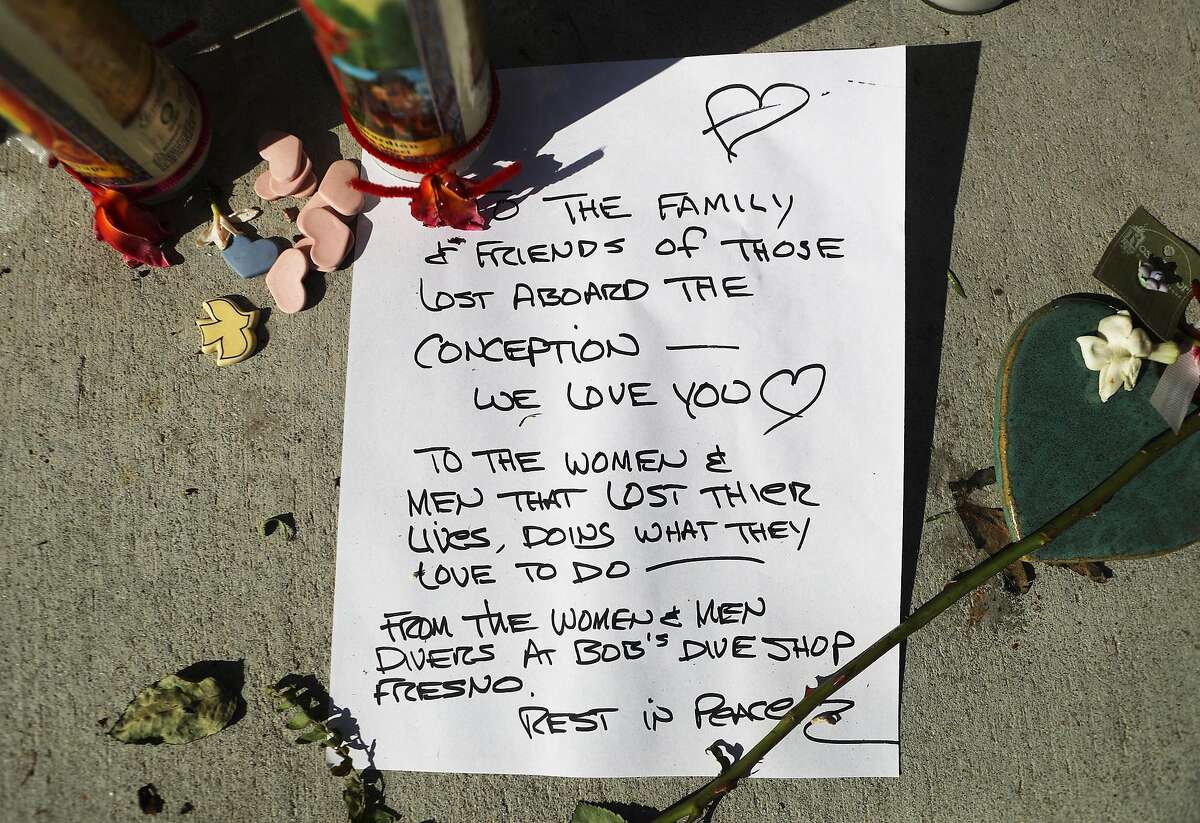 TO THE FAMILY
& FRIENDS OF THOSE
LOST ABOARD THE
CONCEPTION —
WE LOVE YOU
TO THE WOMEN &
MEN THAT LOST THIER
LIVES, DOING WHAT THEY
LOVE TO DO —
FROM THE WOMEN & MEN
DIVERS AT BOB'S DIVE SHOP
FRESNO.
REST IN PEACE